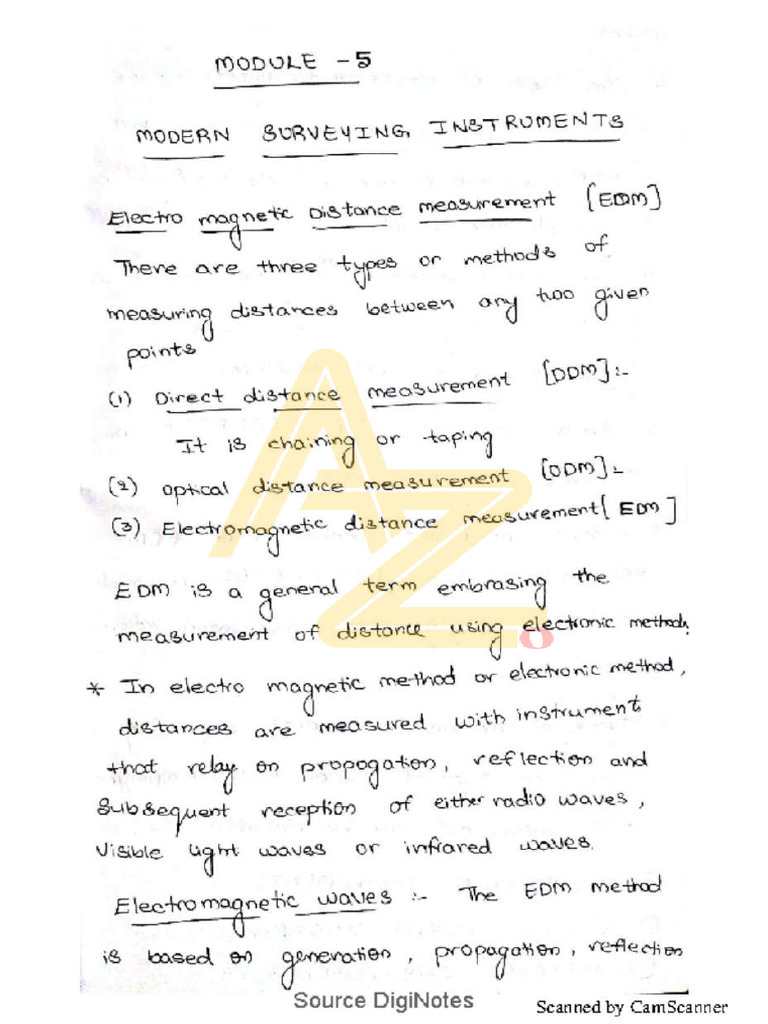 MODULE - 5
MODERN SURVEYING INSTRUMENTS
Electro magnetic Distance measurement [EDM]
There are three types or methods of
measuring distances between any two given
points
(1) Direct distance measurement [DDM]:-
It is chaining or taping
(2) optical distance measurement [ODM]:-
(3) Electromagnetic distance measurement [EDM]
EDM is a general term embrasing the
measurement of distance using electronic methods.
* In electro magnetic method or electronic method,
distances are measured with instrument
that relay on propogation, reflection and
subsequent reception of either radio waves,
visible light waves or infrared waves.
Electromagnetic waves :- The EDM method
is based on generation, propagation, reflection
AZ
o
Source DigiNotes
Scanned by CamScanner